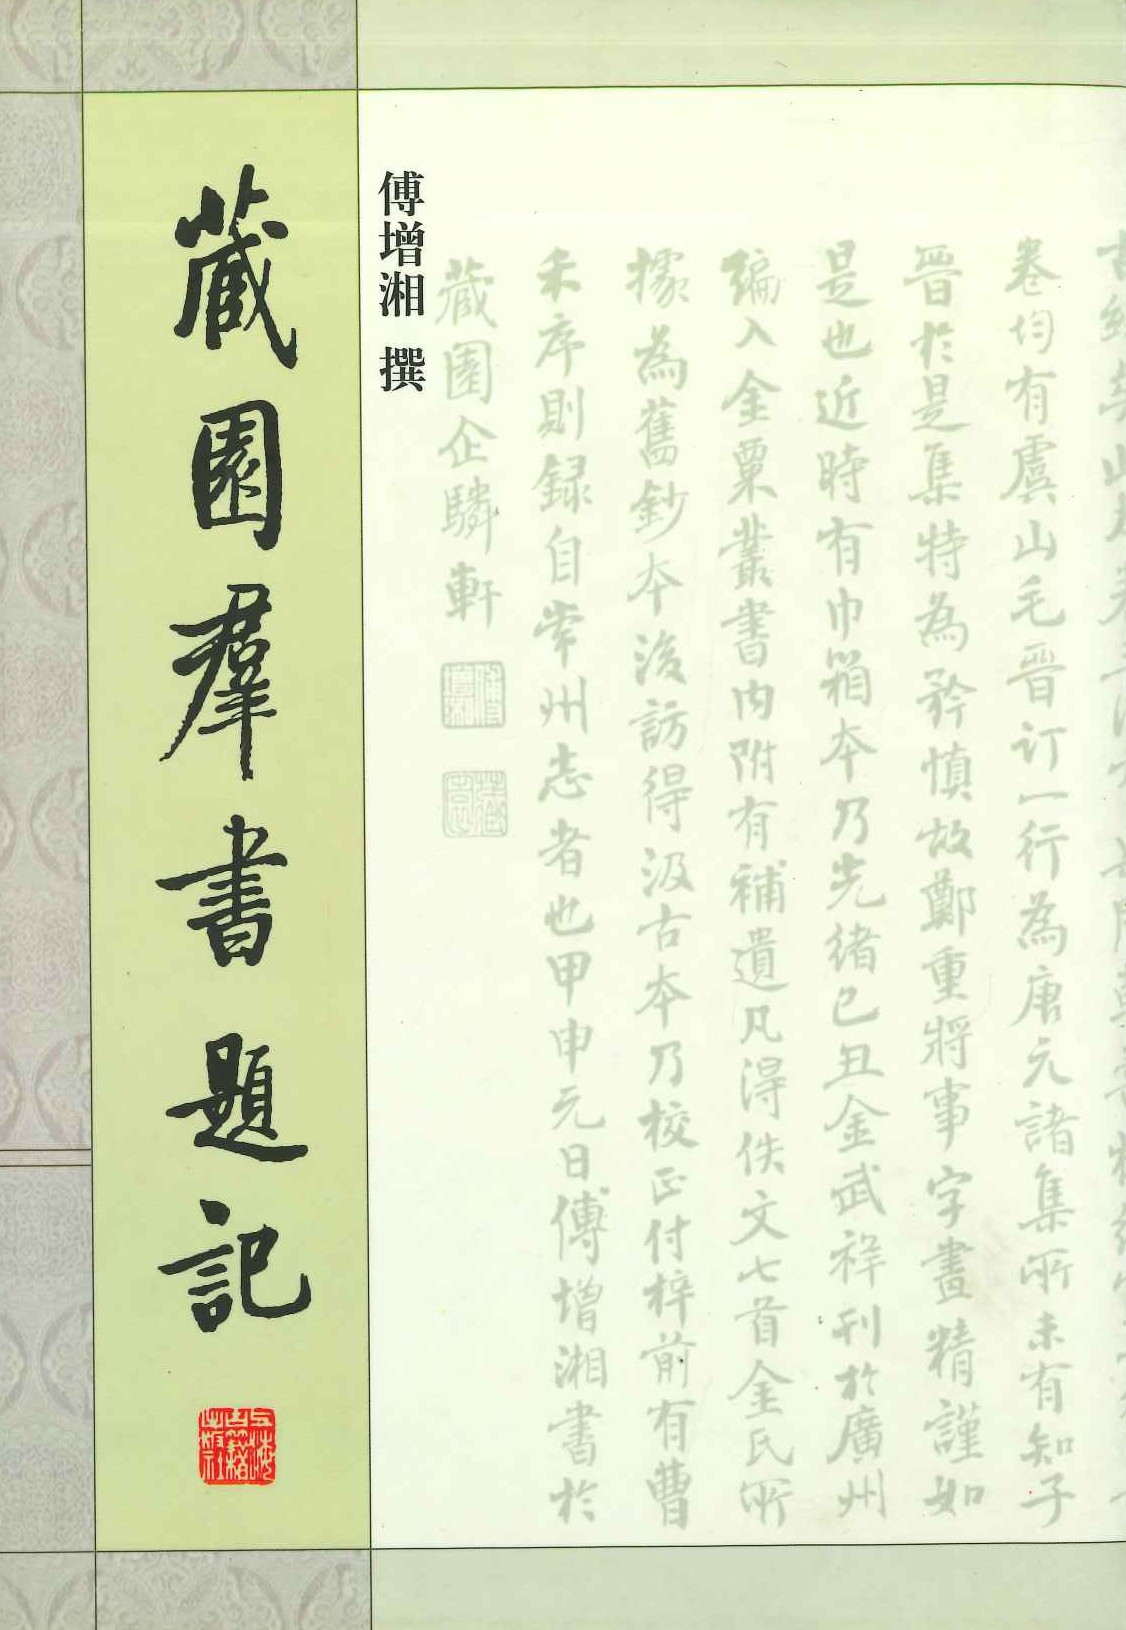 藏園羣書題記
上海古籍出版社
傅增湘 撰
卷均有虞山毛晋订一行為唐元諸集所未有知子
晉於是集特為矜慎故鄭重將事字畫精謹如
是也近時有巾箱本乃光緒己丑金武祥刊於廣州
編入金粟叢書内附有補遺凡得佚文七首金氏所
據為舊鈔本後訪得汲古本乃校正付梓前有曹
禾序則録自常州志者也甲申元日傅增湘書於
藏園企驎軒